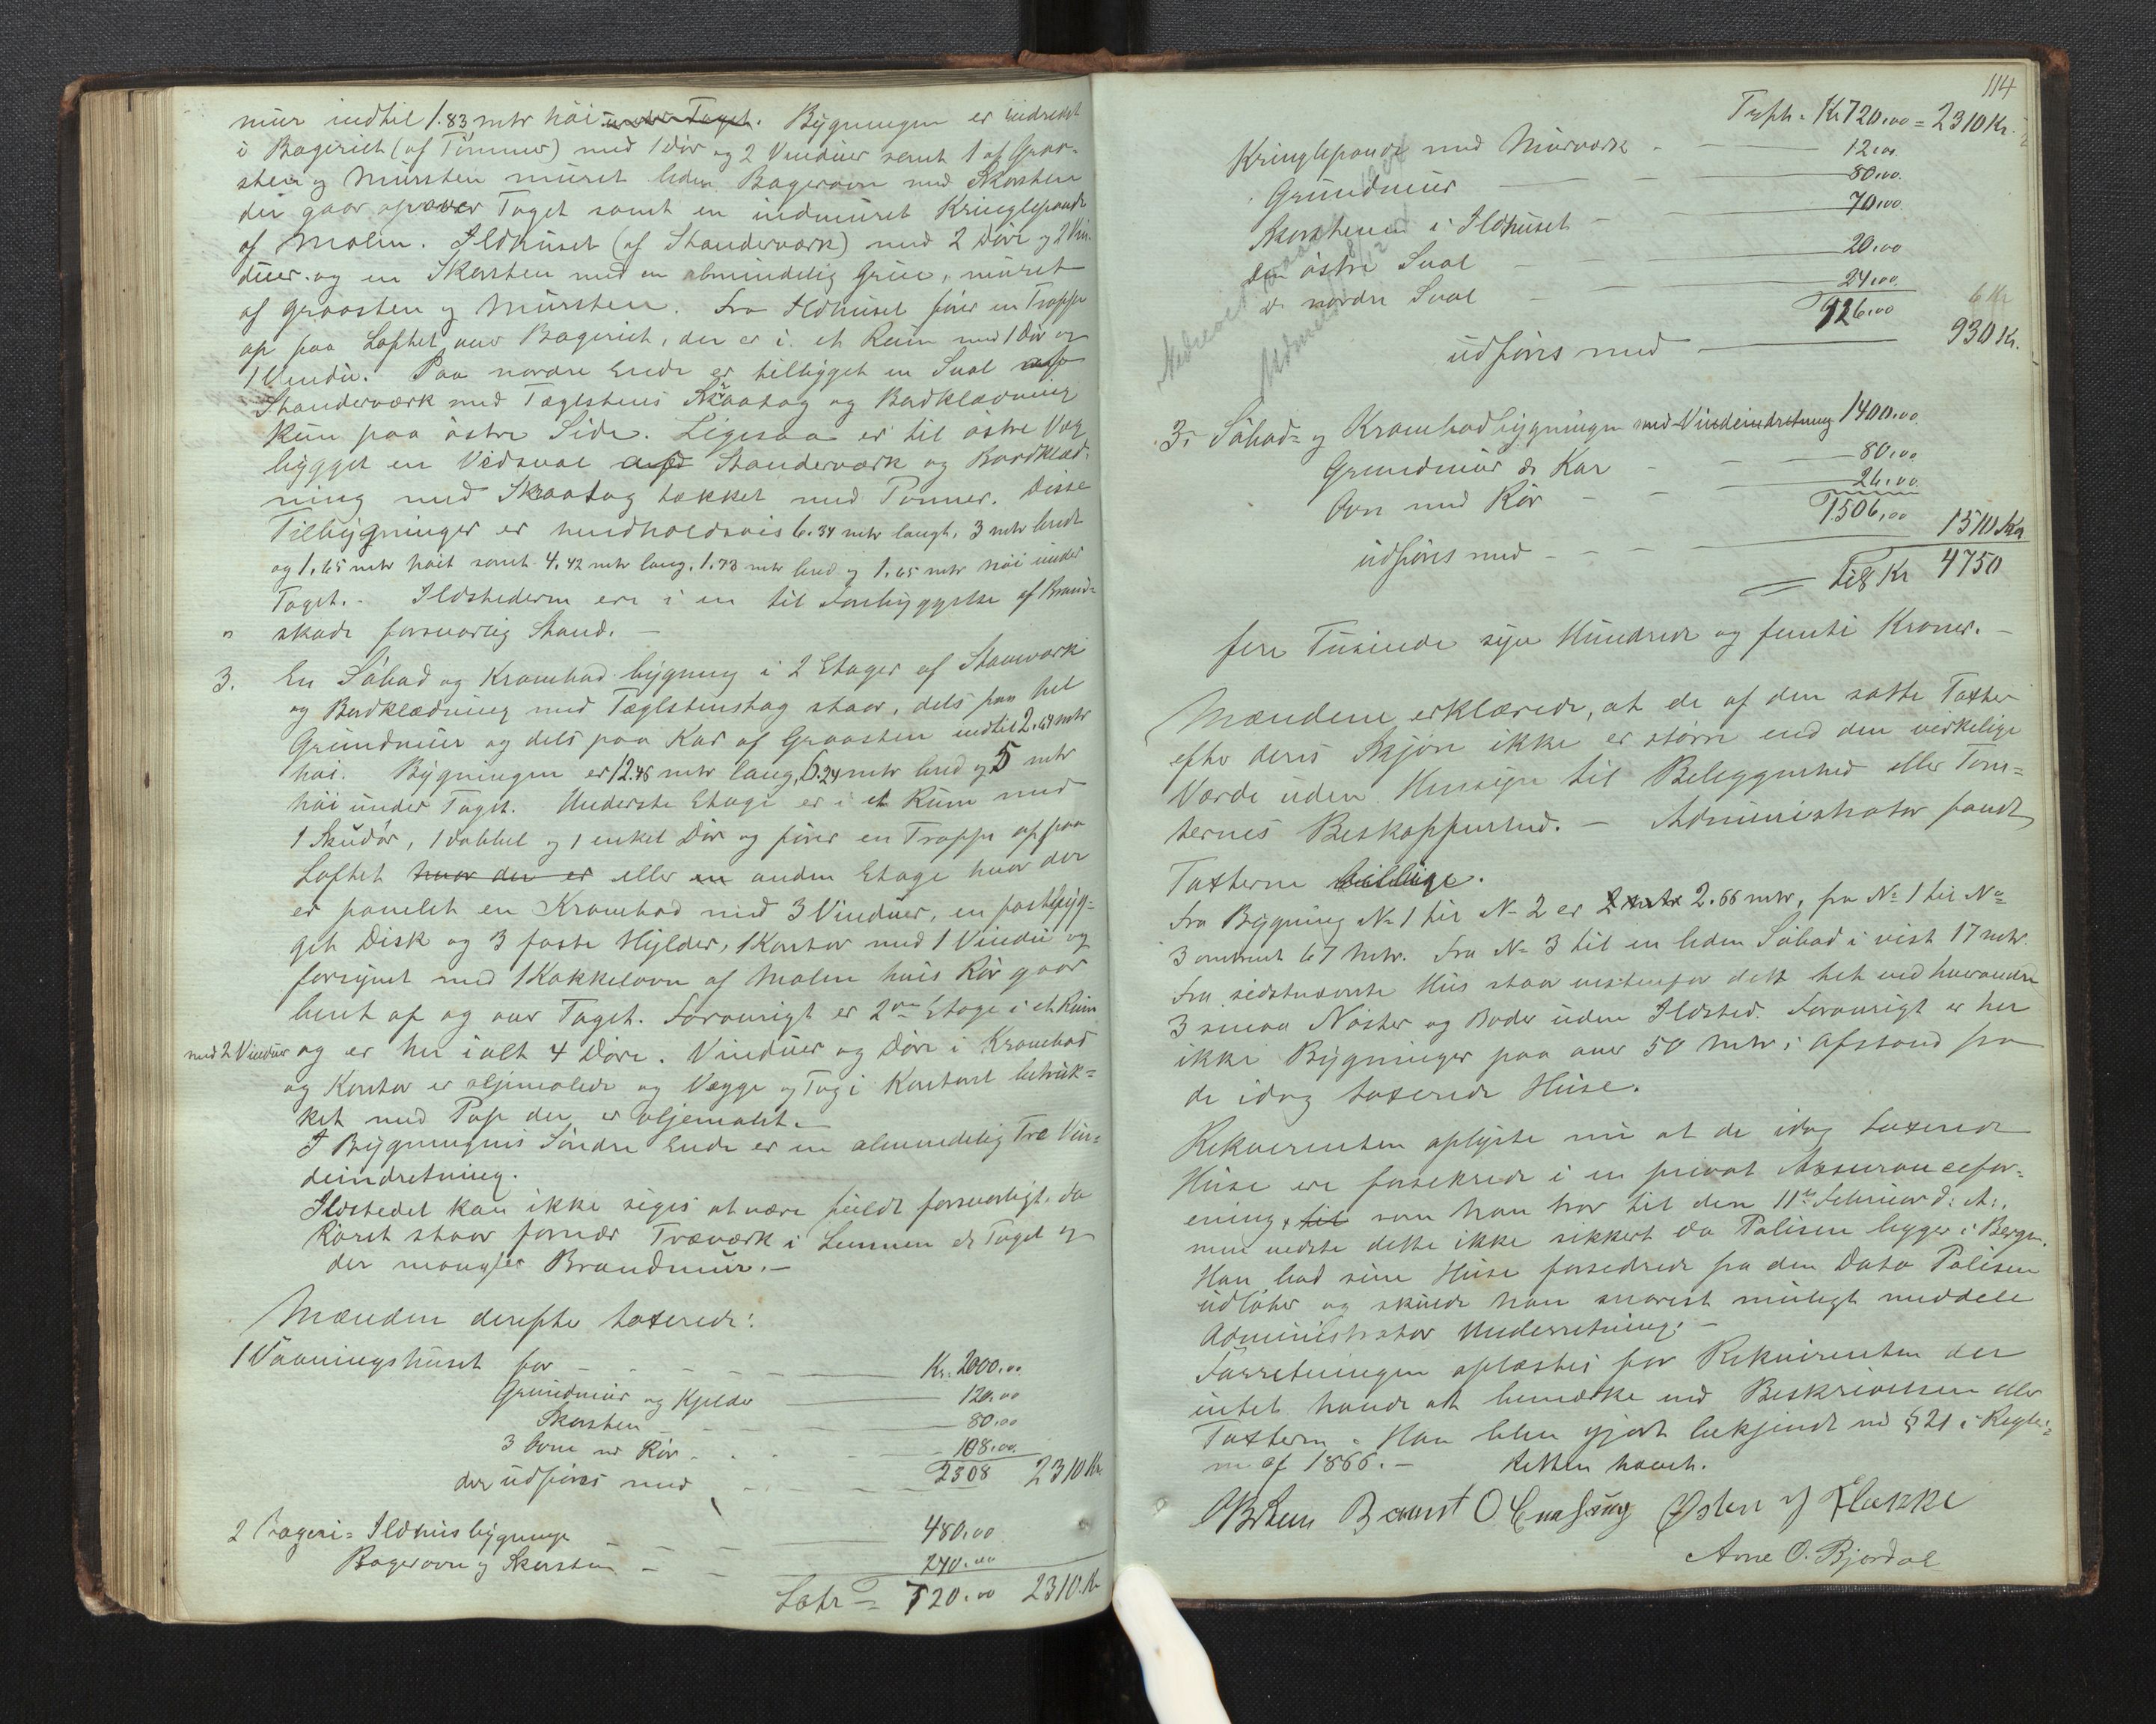 mur indtil 1.83 mtr höi under Taget. Bygningen er indredet
i Bageriet (af Tömmer) med 1 Dör og 2 Vinduer samt 1 af Graa-
sten og Mursten muret liden Bagerovn med Skorsten
der gaar op over Taget samt en indmuret Kringlepande
af Malm. Ildhuset (af Standerværk) med 2 Döre og 2 Vin-
duer og en Skorsten med en almindelig Grue, muret
af Graasten og Mursten. Fra Ildhuset förer en Trappe
op paa Loftet over Bageriet, der er i et Rum med 1 Dör og
1 Vindu. Paa nordre Ende er tilbygget en Sval af
Standerværk med Tæglstens Skraatag og Bordklædning
kun paa östre Side. Ligesaa er til östre Væg
bygget en Vedsval af Standerværk og Bordklæd-
ning med Skraatag tækket med Panner. Disse
Tilbygninger er henholdsvis 6.34 mtr langt, 3 mtr bredt
og 1.65 mtr höit samt 4.42 mtr lang, 1.73 mtr bred og 1.65 mtr höi under
Taget. - Ildstederne ere i en til Forebyggelse af Brand-
" skade forsvarlig Stand. -
3. En Söbod og Krambod bygning i 2 Etager af Stavværk
og Bordklædning med Tæglstenstag staar, dels paa hel
Grundmur og dels paa Kar af Graasten indtil 2.64 mtr
höi. Bygningen er 12.48 mtr lang, 6.24 mtr bred og 5 mtr
höi under Taget. Underste Etage er i et Rum med
1 Skudör, 1 dobbel og 1 enkel Dör og förer en Trappe op paa
Loftet hvor der er eller en anden Etage hvor der
er panelet en Krambod med 3 Vinduer, en fastbyg-
get Disk og 3 faste Hylder, 1 Kontor med 1 Vindu og
forsynet med 1 Kakkelovn af Malm hvis Rör gaar
bent op og over Taget. Forövrigt er 2den Etage i et Rum
med 2 Vinduer og er her i alt 4 Döre. Vinduer og Döre i Krambod
og Kontor er oljemalede og Vægge og Tag i Kontoret betræk-
ket med Pap der er oljemalet. -
I Bygningens Söndre Ende er en almindelig Træ Vin-
deindretning.
Ildstedet kan ikke siges at være fuldt forsvarligt, da
Röret staar fornær Træværk i Lemmen & Taget og
der mangler Brandmur. -
Mændene derefter taxerede:
1 Vaaningshuset for - - - Kr. 2000.00
Grundmur og Kjelder 120.00
Skorsten 80.00
3 Ovne m Rör 108.00
der udföres med 2308 2310 Kr.
2 Bageri- Ildhusbygninge 480.00
Bagerovn og Skorsten - 240.00
Latr = 720.00 2310. Kr
114
Trpt. Kr 720.00 = 2310 Kr.
Kringlepande med Murværk - 12.00
Grundmur 80.00
Skorstenen i Ildhuset 70.00
den östre Sval 20.00
D. nordre Sval 24.00
926.00 6 Kr
udföres med 930 Kr.
3. Söbod- og Krambodbygningen med Vindeindretning 1400.00
Grundmur & Kar 80.00
Ovn med Rör 26.00
1506.00
udföres med - - - 1510 Kr
Til Kr 4750
fire Tusinde syv Hundrede og femti Kroner. -
Mændene erklærede, at de af dem satte Taxter
efter deres Skjön ikke er större end den virkelige
Værdi uden Hensyn til Beliggenhed eller Tom-
ternes Beskaffenhed. - Administrator fandt
Taxterne billige.
Fra Bygning No 1 til No 2 er 2 mtr 2.66 mtr, fra No 1 til No
3 omtrent 67 mtr. Fra No 3 til en liden Söbod i vest 17 mtr.
Fra sidstnævnte Hus staar vestenfor dette tet ved hverandre
3 smaa Nöster og Boder uden Ildsted. Forövrigt er her
ikke Bygninger paa over 50 mtr. i Afstand fra
de idag taxerede Huse.
Rekvirenten oplyste nu at de idag taxerede
Huse ere forsikrede i en privat Assurancefor-
ening, til som han tror til den 11te Februar d: A:,
men vedste dette ikke sikkert da Polisen ligger i Bergen.
Han bad sine Huse forsikrede fra den Dato Polisen
udlöber og skulde han snarest muligt meddele
Administrator Underretning. -
Forretningen oplæstes for Rekvirenten der
intet havde at bemærke ved Beskrivelsen eller
Taxterne. Han blev gjort bekjendt med § 21 i Regle-
m af 1866. - Retten hævet.
Bernt O Østen Flække
Arne O. Bjordal